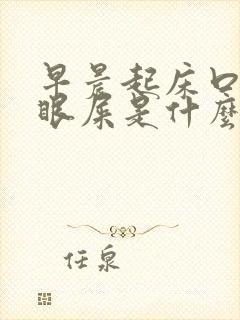 早晨起床口
眼屎是什麼
任泉